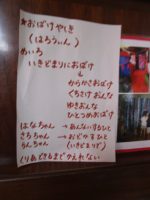 *おばけやしき
(はろうぃん)
めいろ
いきどまりにおばけ
↓
からかさおばけ
くちさけおんな
ゆきおんな
ひとつめおばけ
はなちゃん → あんないするひと
さらちゃん → おどかすひと
らんちゃん (いきどまり)
くりあできるまでかえれない